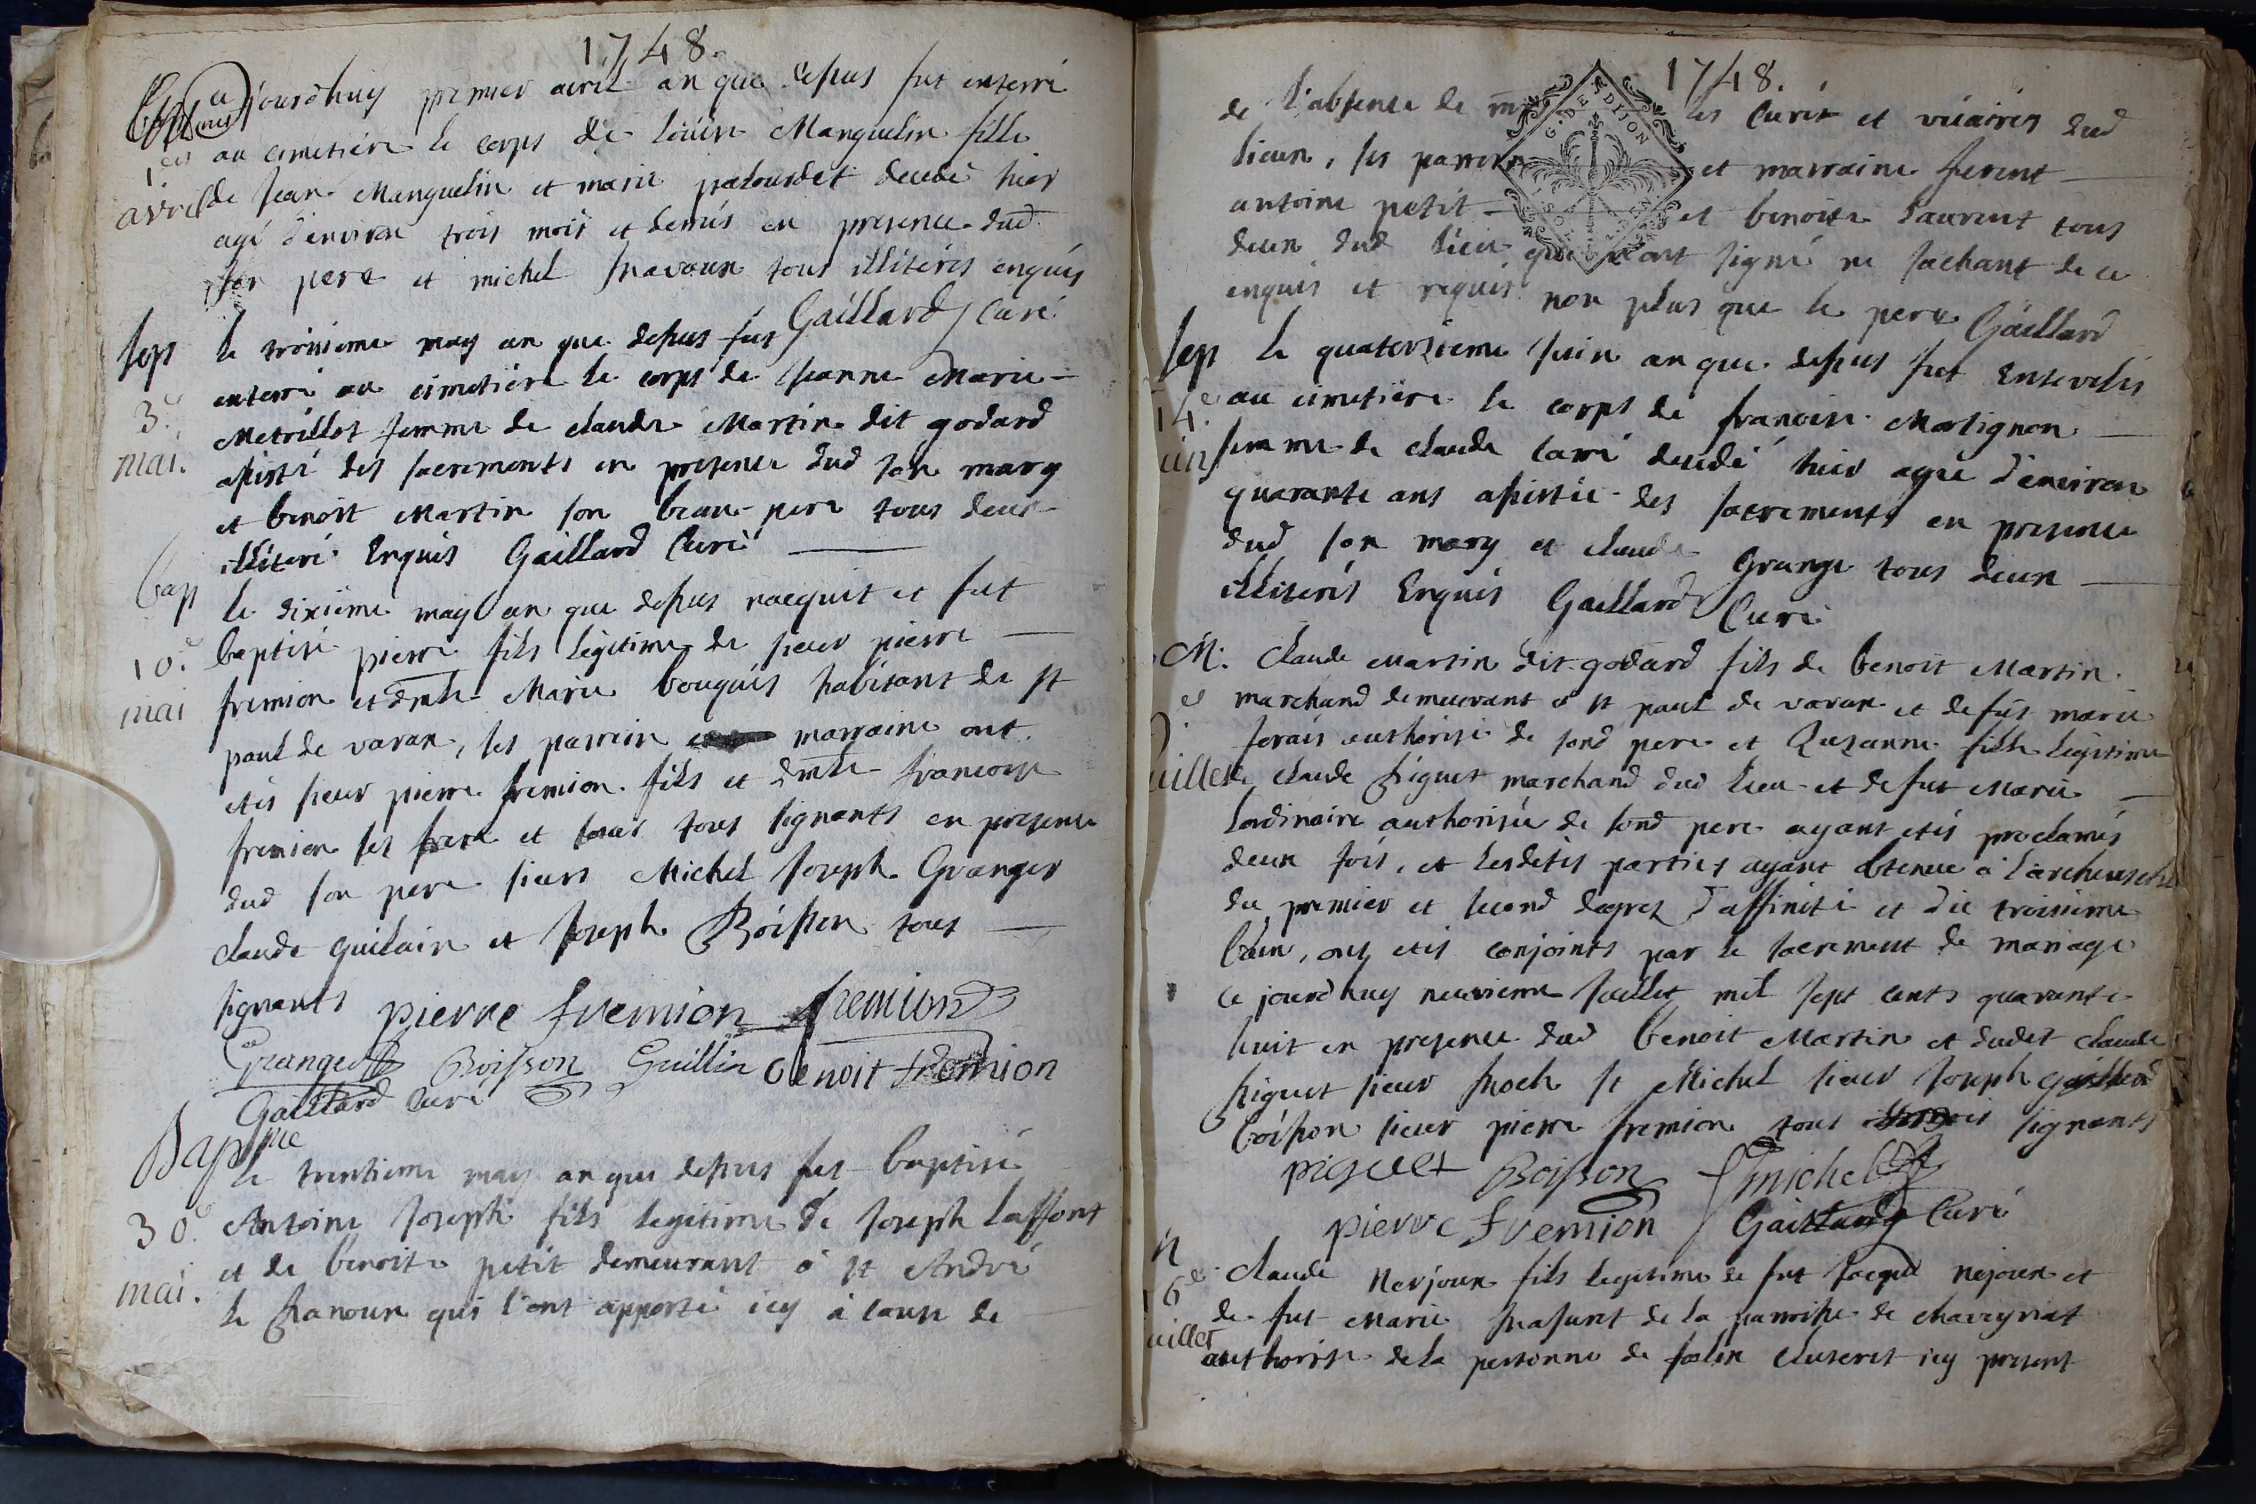 1748.
aujourdhuy premier avril an que desus fut enterré
1er au cimetiere le corps de Manguelin fille
avril de Jean Manguelin et marie palourdet decedé hier
agé d'environ trois mois et demis en presence dud
son pere et michel navoux tous illiterés enquis
Gaillard Curé
Sep le troisieme may an que desus fut
enterré au cimetiere le corps de Jeanne Marie
3e Metrillot femme de claude Martin dit godard
mai. asisté des sacrements en presence dud son mary
et benoit Martin son beau-pere tous deux
illiteré Enquis Gaillard Curé
bap le dixième may an que desus nacquit et fut
10e baptisé pierre fils légitime de sieur pierre
mai fremion et dmlle Marie bouquis habitant de st
paul de varax, ses parrein marraine ont
etés sieur pierre fremion fils et dmlle francoise
fremion ses frere et soeur tous signants en presence
dud son pere sieurs Michel Joseph Granger
claude guilain et Joseph Boisson tous
signants pierre fremion fremion
Granger Boisson Guillin benoit fremion
Gaillard Curé
Baptme
le trentieme may an que desus fut baptisé
30e Antoine Joseph fils legitime de Joseph Laffont
mai. et de benoite petit demeurant à st André
le panoux qui l'ont apporté icy à cause de
1748.
de l'absence de les Curés et vicaires dud
G. DE DIJON
lieux, ses parrein et marraine furent
antoine petit et benoite Laurent tous
deux dud lieu qui n'ont signé ne sachant de ce
enquis et requis non plus que le pere Gaillard
Sep le quatorzieme Juin an que desus fut Ensevelis
14e au cimetiere le corps de francoise Martignon
uin femme de claude carré decedé hier agée d'environ
quarante ans asistée des sacrements en presence
dud son mary et claude Grange tous deux
illiterés Enquis Gaillard Curé
M. Claude Martin dit godard fils de benoit Martin
marchand demeurant à st paul de varax et de fut marie
forais authorisé de sond pere et Suzanne fille legitime
uillet de claude piguet marchand dud lieu et de fut Marie
Lordinaire authorisée de sond pere ayant etés proclamés
deux fois, et Lesdetes parties ayant obtenue à L'archevesché
du premier et second degrez d'affinité et du troisieme
ban, ont etés conjoints par le sacrement de mariage
ce jourdhuy neuvieme Juillet mil sept cents quarante
huit en presence dud benoit Martin et dudet claude
piguet sieur Roch st Michel sieur Joseph Gaillard
boisson sieur pierre fremion tous signants
piguet Boisson michel
pierre fremion Gaillard Curé
6e claude Nerjoux fils legitime de fut Jacque nejoux et
uillet de fut Marie de la parroisse de chaveyriat
authorisé de la personne de icy present